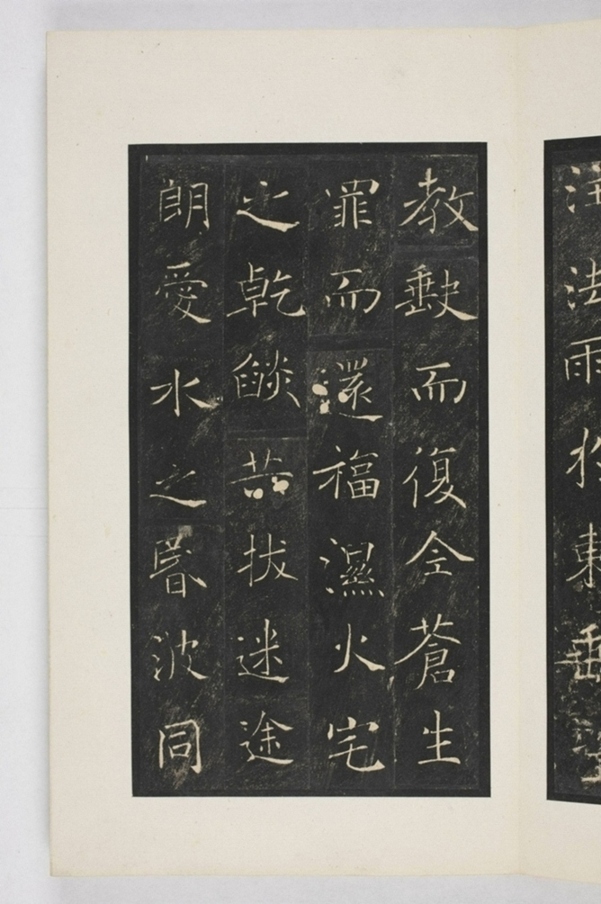 注法雨於東垂聖
教缺而復全蒼生
罪而還福濕火宅
之乾燄共拔迷途
朗愛水之昬波同